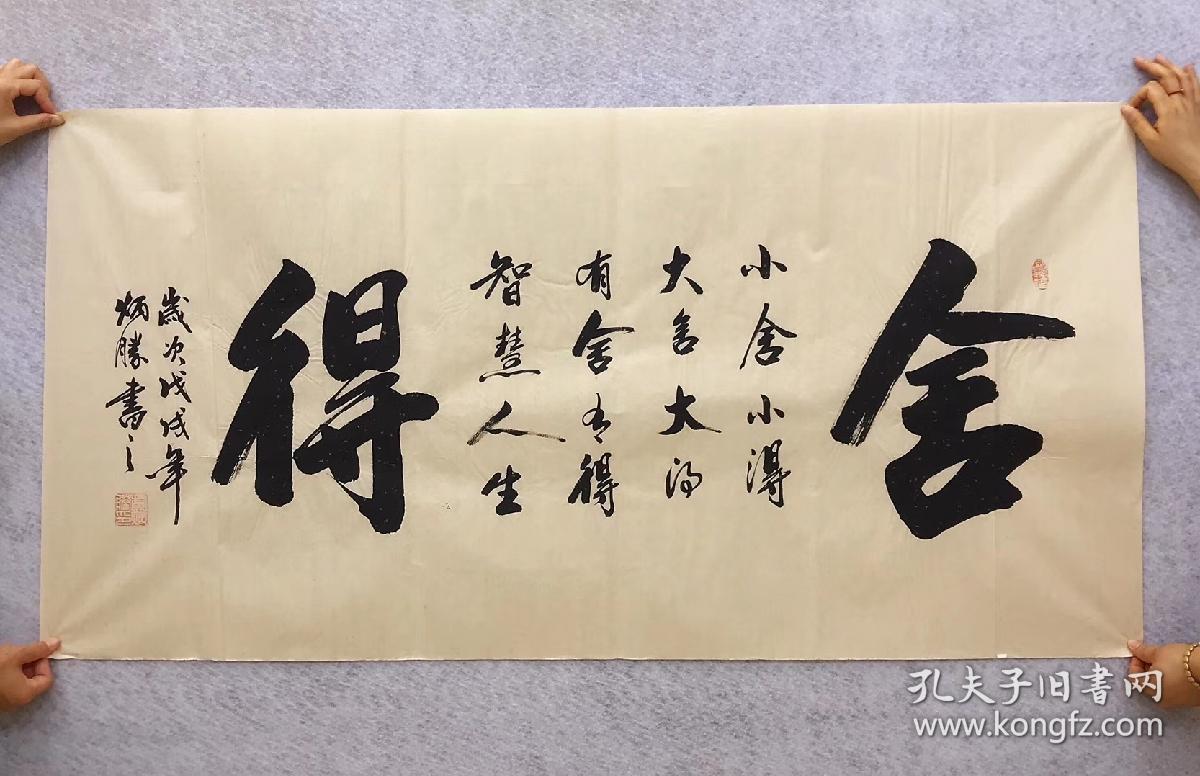 舍
小舍小得
大舍大得
有舍有得
智慧人生
得
歲次戊戌年
炳勝書之
孔夫子旧書网
www.kongfz.com